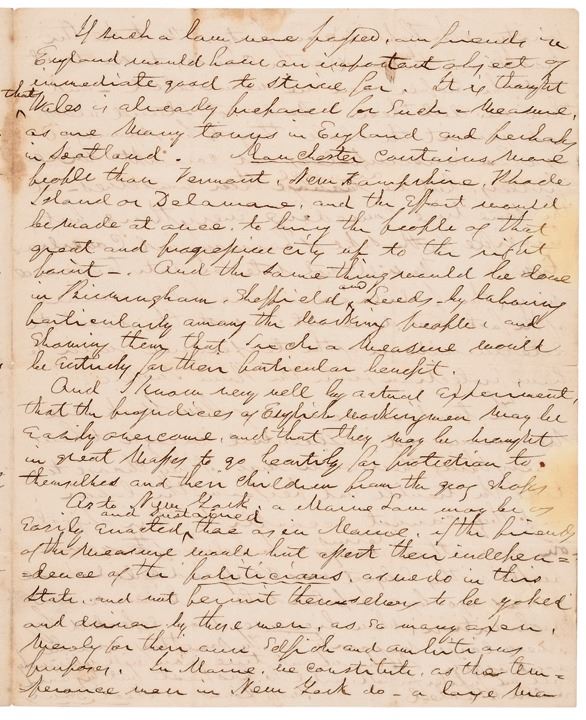 If such a law were passed, our friends in
England would have an important object of
immediate good to strive for. It is thought
that
Wales is already prepared for such a measure,
as are many towns in England (and perhaps
in Scotland. Manchester contains more
people than Vermont, New Hampshire, Rhode
Island or Delaware, and the effort would
be made at once, to bring the people of that
great and progressive city up to the right
point -. And the same thing would be done
and
in Birmingham, Sheffield Leeds by laboring
particularly among the working people, and
showing them that such a measure would
be entirely for their particular benefit.
And I know very well by actual experiment,
that the prejudices of English workingmen may be
easily overcome, and that they may be brought
in great masses to go heartily for protection to
themselves and their children from the grog shops.
As to New York, a Maine Law may be as
and sustained
easily enacted, there as in Maine, if the friends
of the measure would but assert their indepen=
=dence of the politicians, as we do in this
State, and not permit themselves to be yoked
and driven by these men, as so many oxen,
merely for their own selfish and ambitious
purposes. In Maine, we constitute, as the tem=
perance men in New York do - a large ma